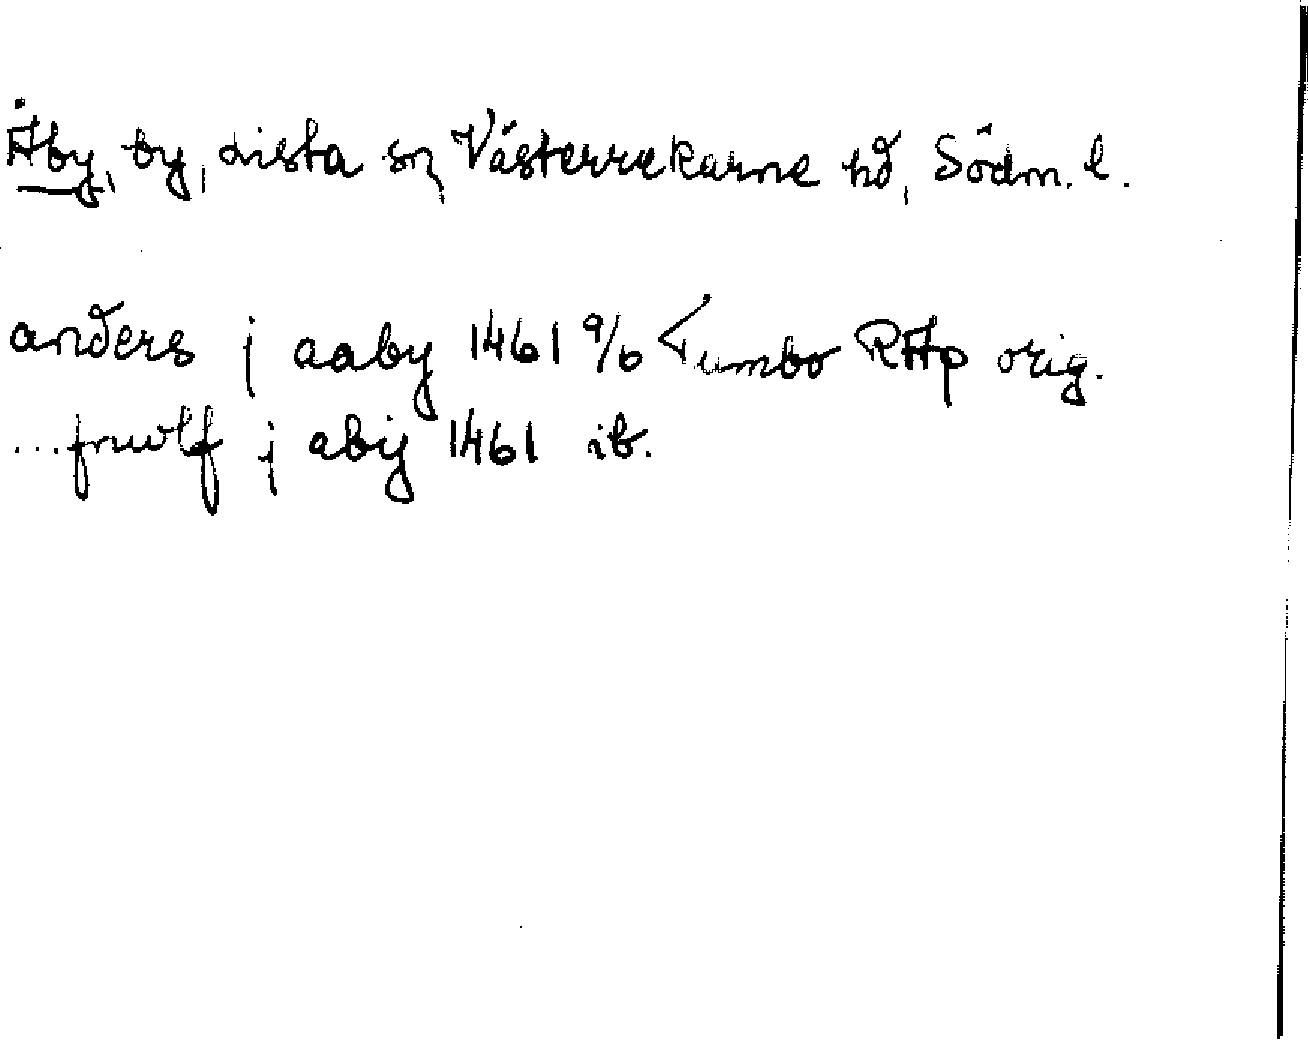 Åby, by, Lista sn, Västerrekarne hd, Södm. l.
anders j aaby 1461 9/6 Tumbo RAp orig.
...fruulf j abij 1461 ib.